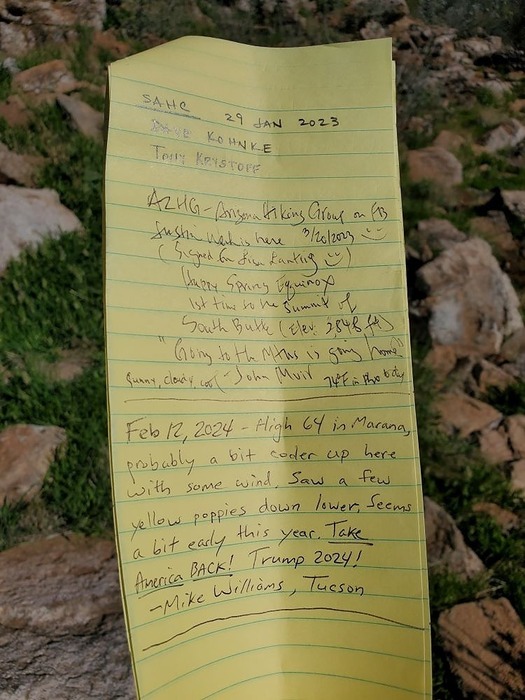 SAHC 29 JAN 2023
DAVE KOHNKE
TONY KRYSTOFF
AZHG - Arizona Hiking Group on FB
was here 3/20/2023
(Signed for )
Happy Spring Equinox
1st time to the Summit of
South Butte (elev. 2,848 ft)
"Going to the Mtns is going home"
Sunny, cloudy, - John Muir 74°F in today
Feb 12, 2024 - High 64 in Marana,
probably a bit colder up here
with some wind. Saw a few
yellow poppies down lower, Seems
a bit early this year. Take
America BACK! Trump 2024!
-Mike Williams, Tucson